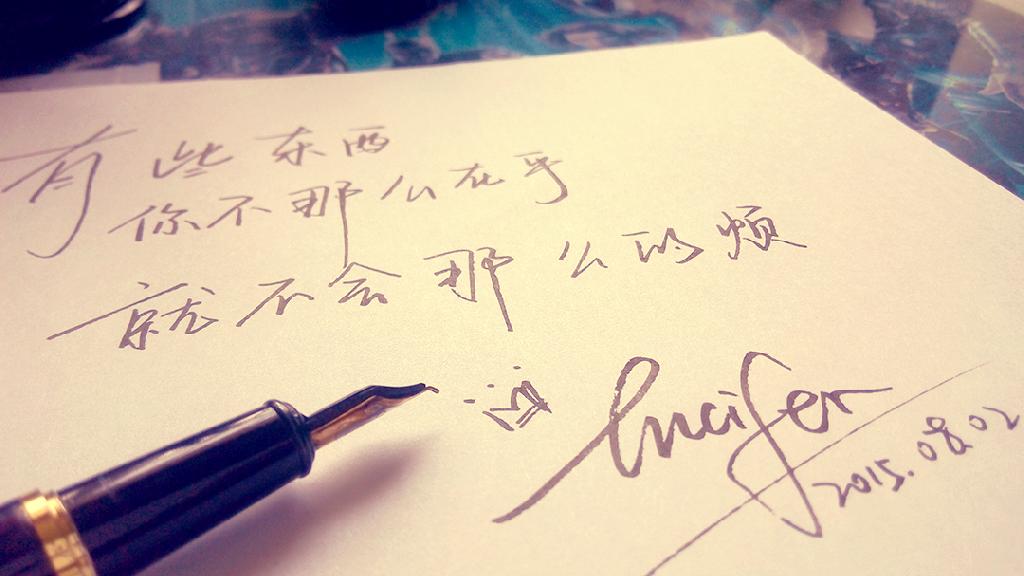 有些东西
你不那么在乎
就不会那么的烦
Lucifer
2015.08.02